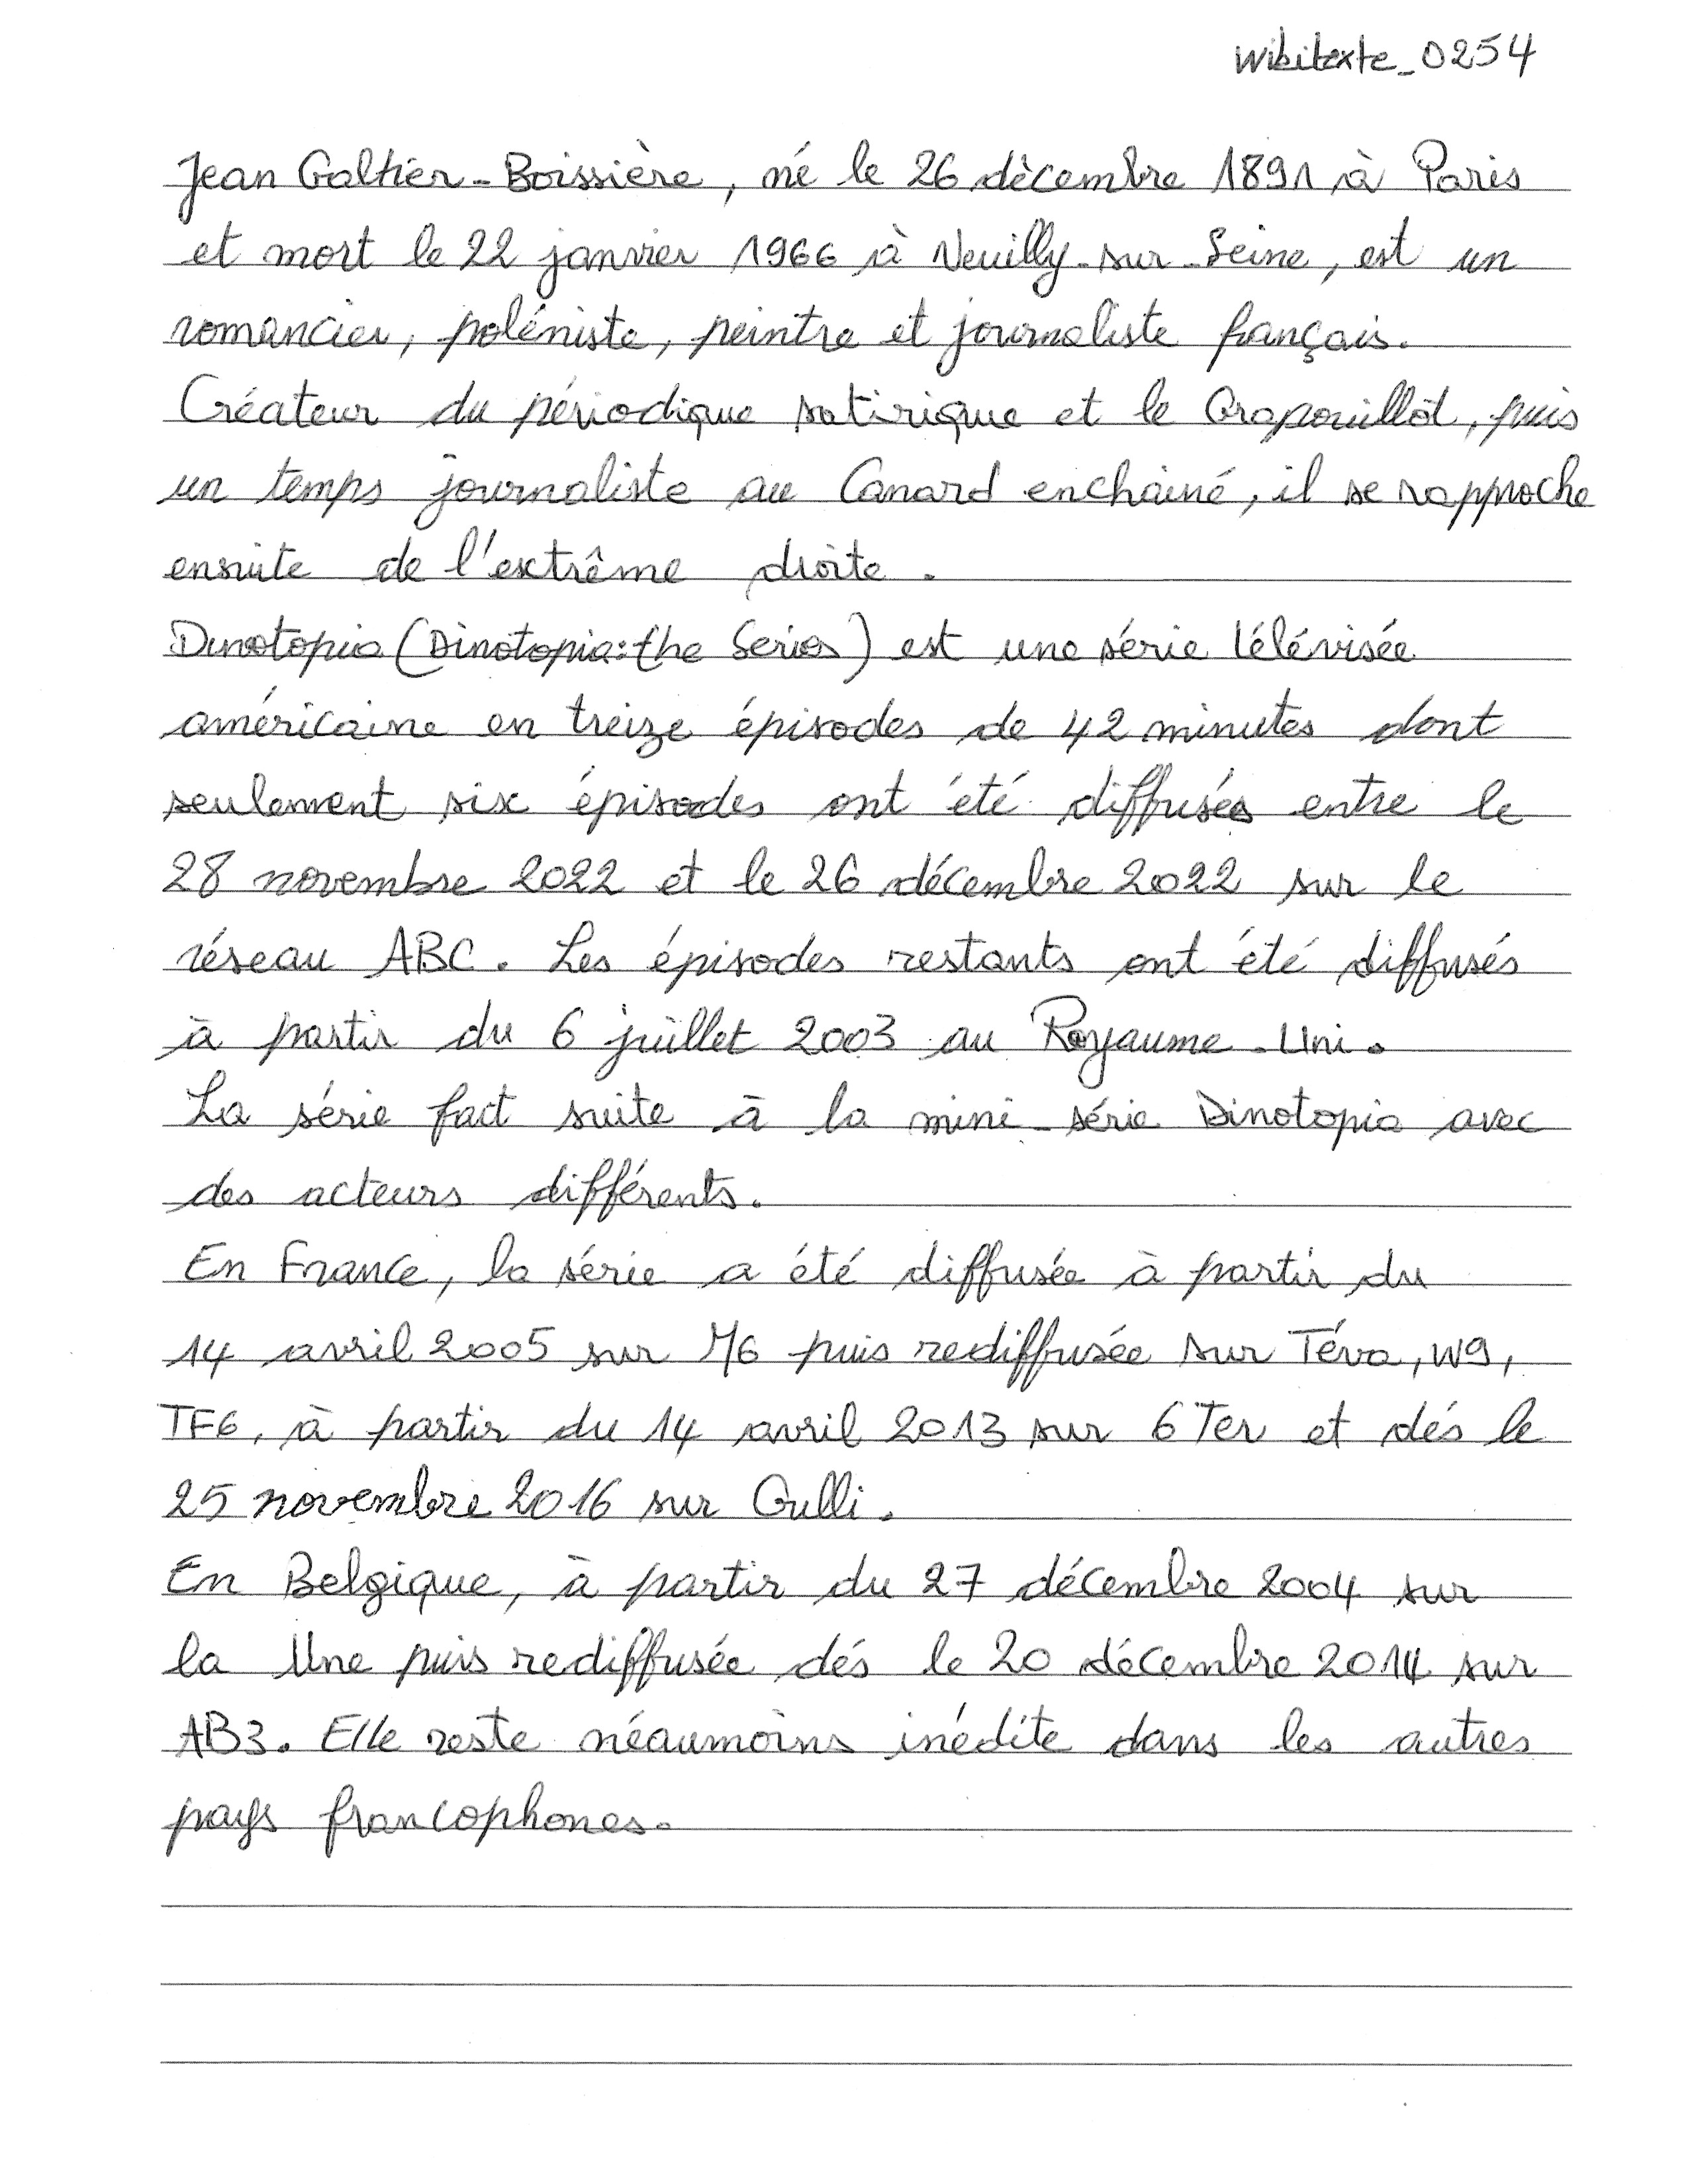 Wikitexte_0254
Jean Galtier-Boissière, né le 26 décembre 1891 à Paris
et mort le 22 janvier 1966 à Neuilly-sur-Seine, est un
romancier, poléniste, peintre et journaliste français.
Créateur du périodique satirique et le Crapouillot, puis
un temps journaliste au Canard enchainé, il se rapproche
ensuite de l'extrême droite.
Dinotopia (Dinotopia: the Series) est une série télévisée
américaine en treize épisodes de 42 minutes dont
seulement six épisodes ont été diffusés entre le
28 novembre 2022 et le 26 décembre 2022 sur le
réseau ABC. Les épisodes restants ont été diffusés
à partir du 6 juillet 2003 au Royaume-Uni.
La série fait suite à la mini-série Dinotopia avec
des acteurs différents.
En France, la série a été diffusée à partir du
14 avril 2005 sur M6 puis rediffusée sur Téva, W9,
TF6, à partir du 14 avril 2013 sur 6Ter et dés le
25 novembre 2016 sur Gulli.
En Belgique, à partir du 27 décembre 2004 sur
la Une puis rediffusée dés le 20 décembre 2014 sur
AB3. Elle reste néaumoins inédite dans les autres
pays francophones.